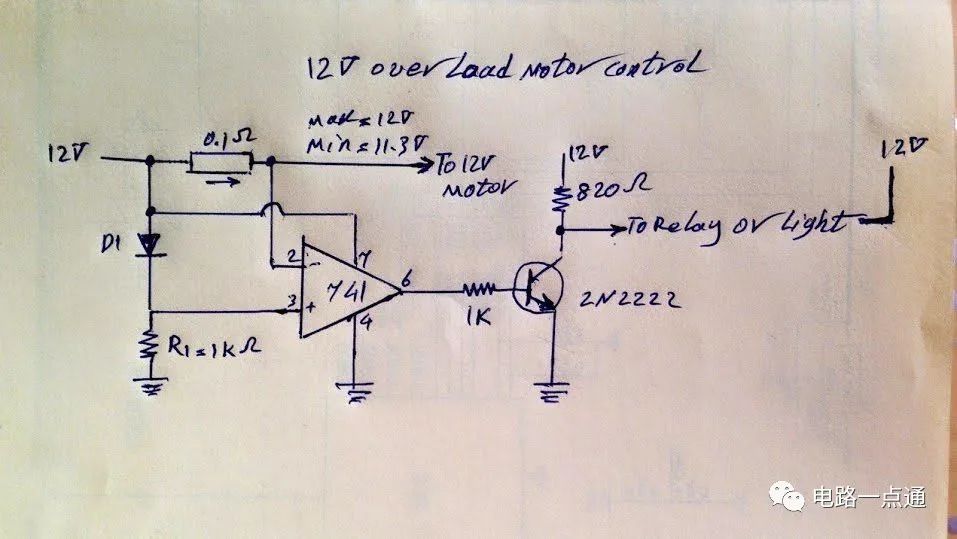 12V overLoad Motor control
12V
0.1Ω
max=12V
Min=11.3V
To 12V
Motor
12V
820Ω
To Relay or Light
12V
D1
2
-
7
741
6
3
+
4
1K
2N2222
R1=1KΩ
电路一点通